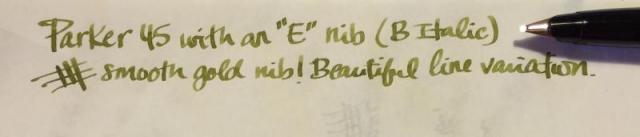 Parker 45 with an "E" nib (B Italic)
smooth gold nib! Beautiful line variation.